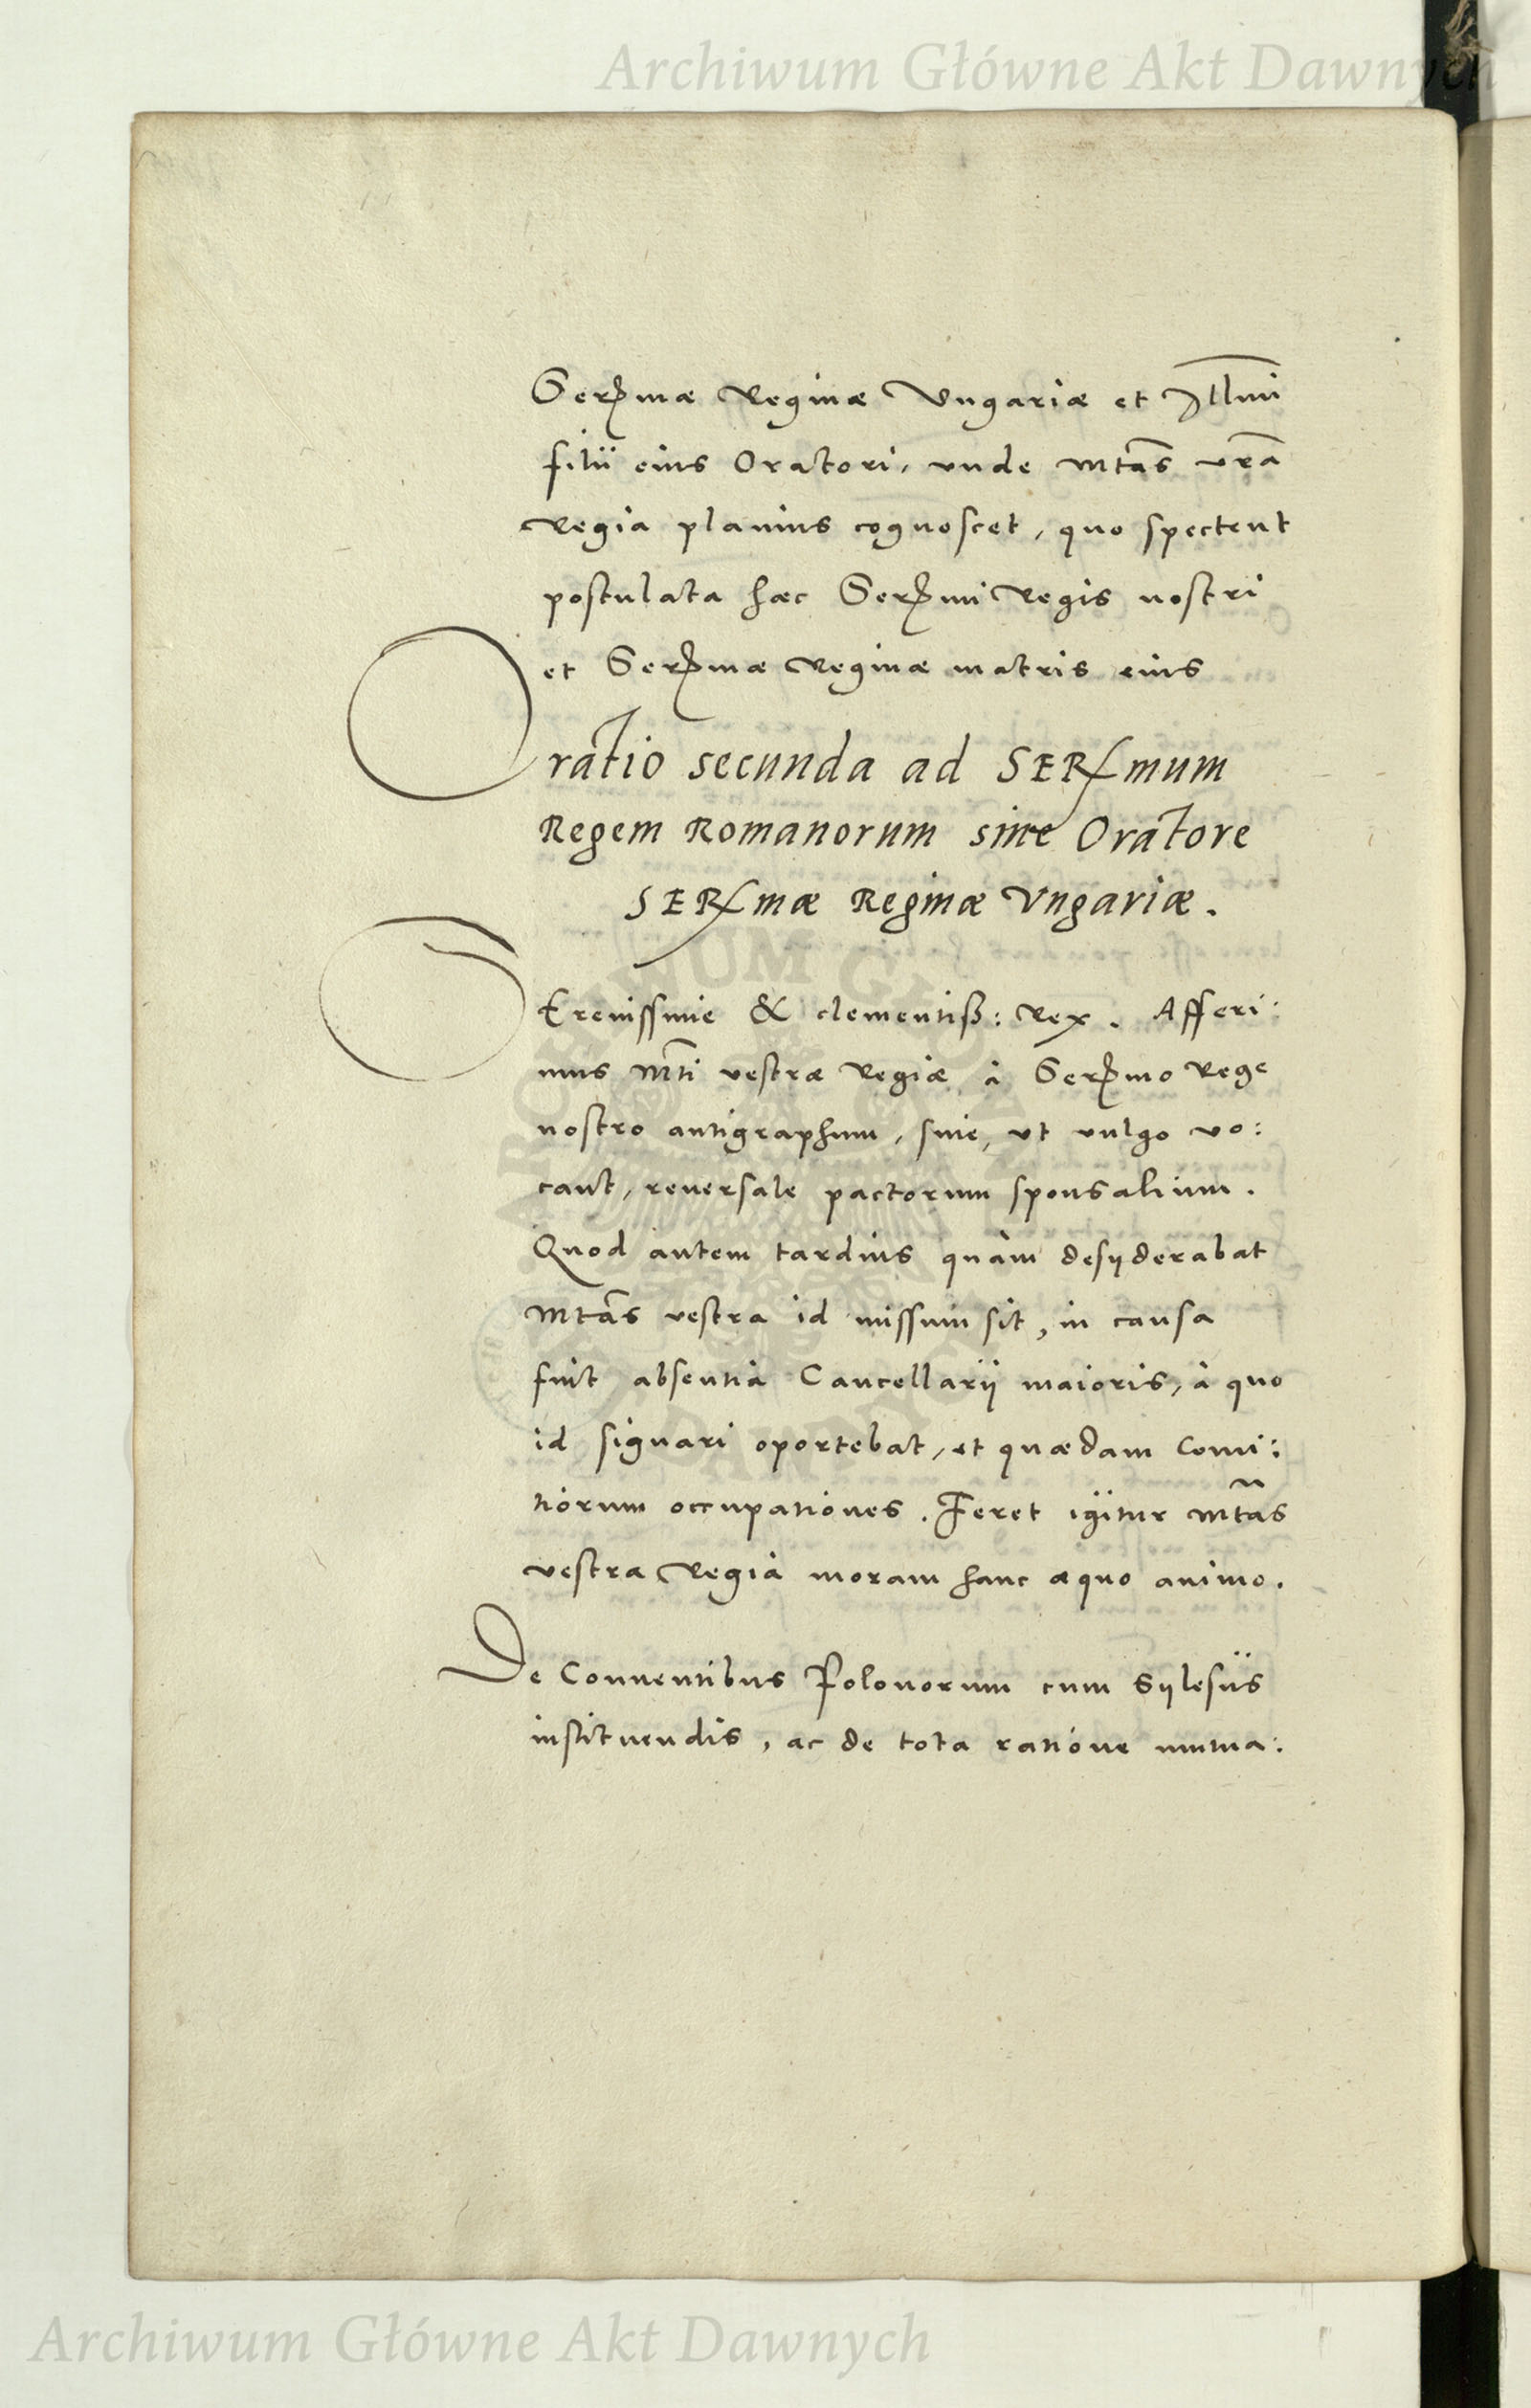 Archiwum Główne Akt Dawnych
Sermæ Reginæ Vngariæ et Illmi
filii eius Oratori, vnde Mtas vra
Regia planius cognoscet, quo spectent
postulata hæc Sermi Regis nostri
et Sermæ Reginæ matris eius
Oratio secunda ad SERmum
Regem Romanorum sine Oratore
SERmæ Reginæ Vngariæ.
SErenissime & clementiss: Rex. Afferi:
mus Mti vestræ Regiæ à Sermo Rege
nostro antigraphum, siue, vt vulgo vo:
cant, reuersale pactorum sponsalium.
Quod autem tardius quàm desyderabat
Mtas vestra id missum sit, in causa
fuit absentia Cancellarij maioris, à quo
id signari oportebat, et quædam Comi:
tiorum occupationes. Feret igitur Mtas
vestra Regia moram hanc æquo animo.
De Conuentibus Polonorum cum Sylesiis
instituendis, ac de tota ratione mutua:
ARCHIWUM GŁÓWNE AKT DAWNYCH
Archiwum Główne Akt Dawnych